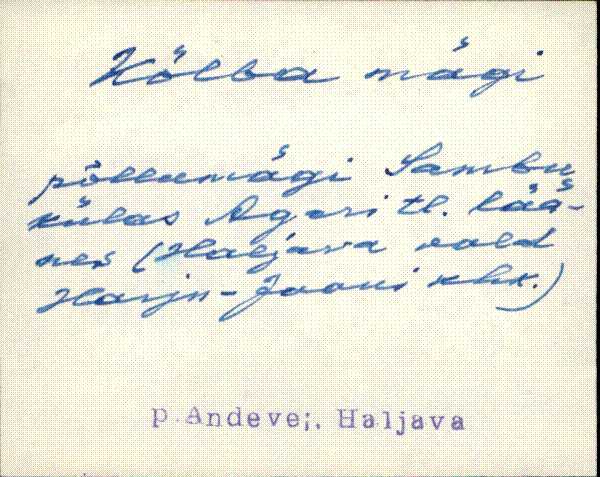 Kõlba mägi
põllumägi Sambu
külas Agari tl. lää-
nes (Haljava vald
Harju-Jaani khk.)
P. Andevei, Haljava